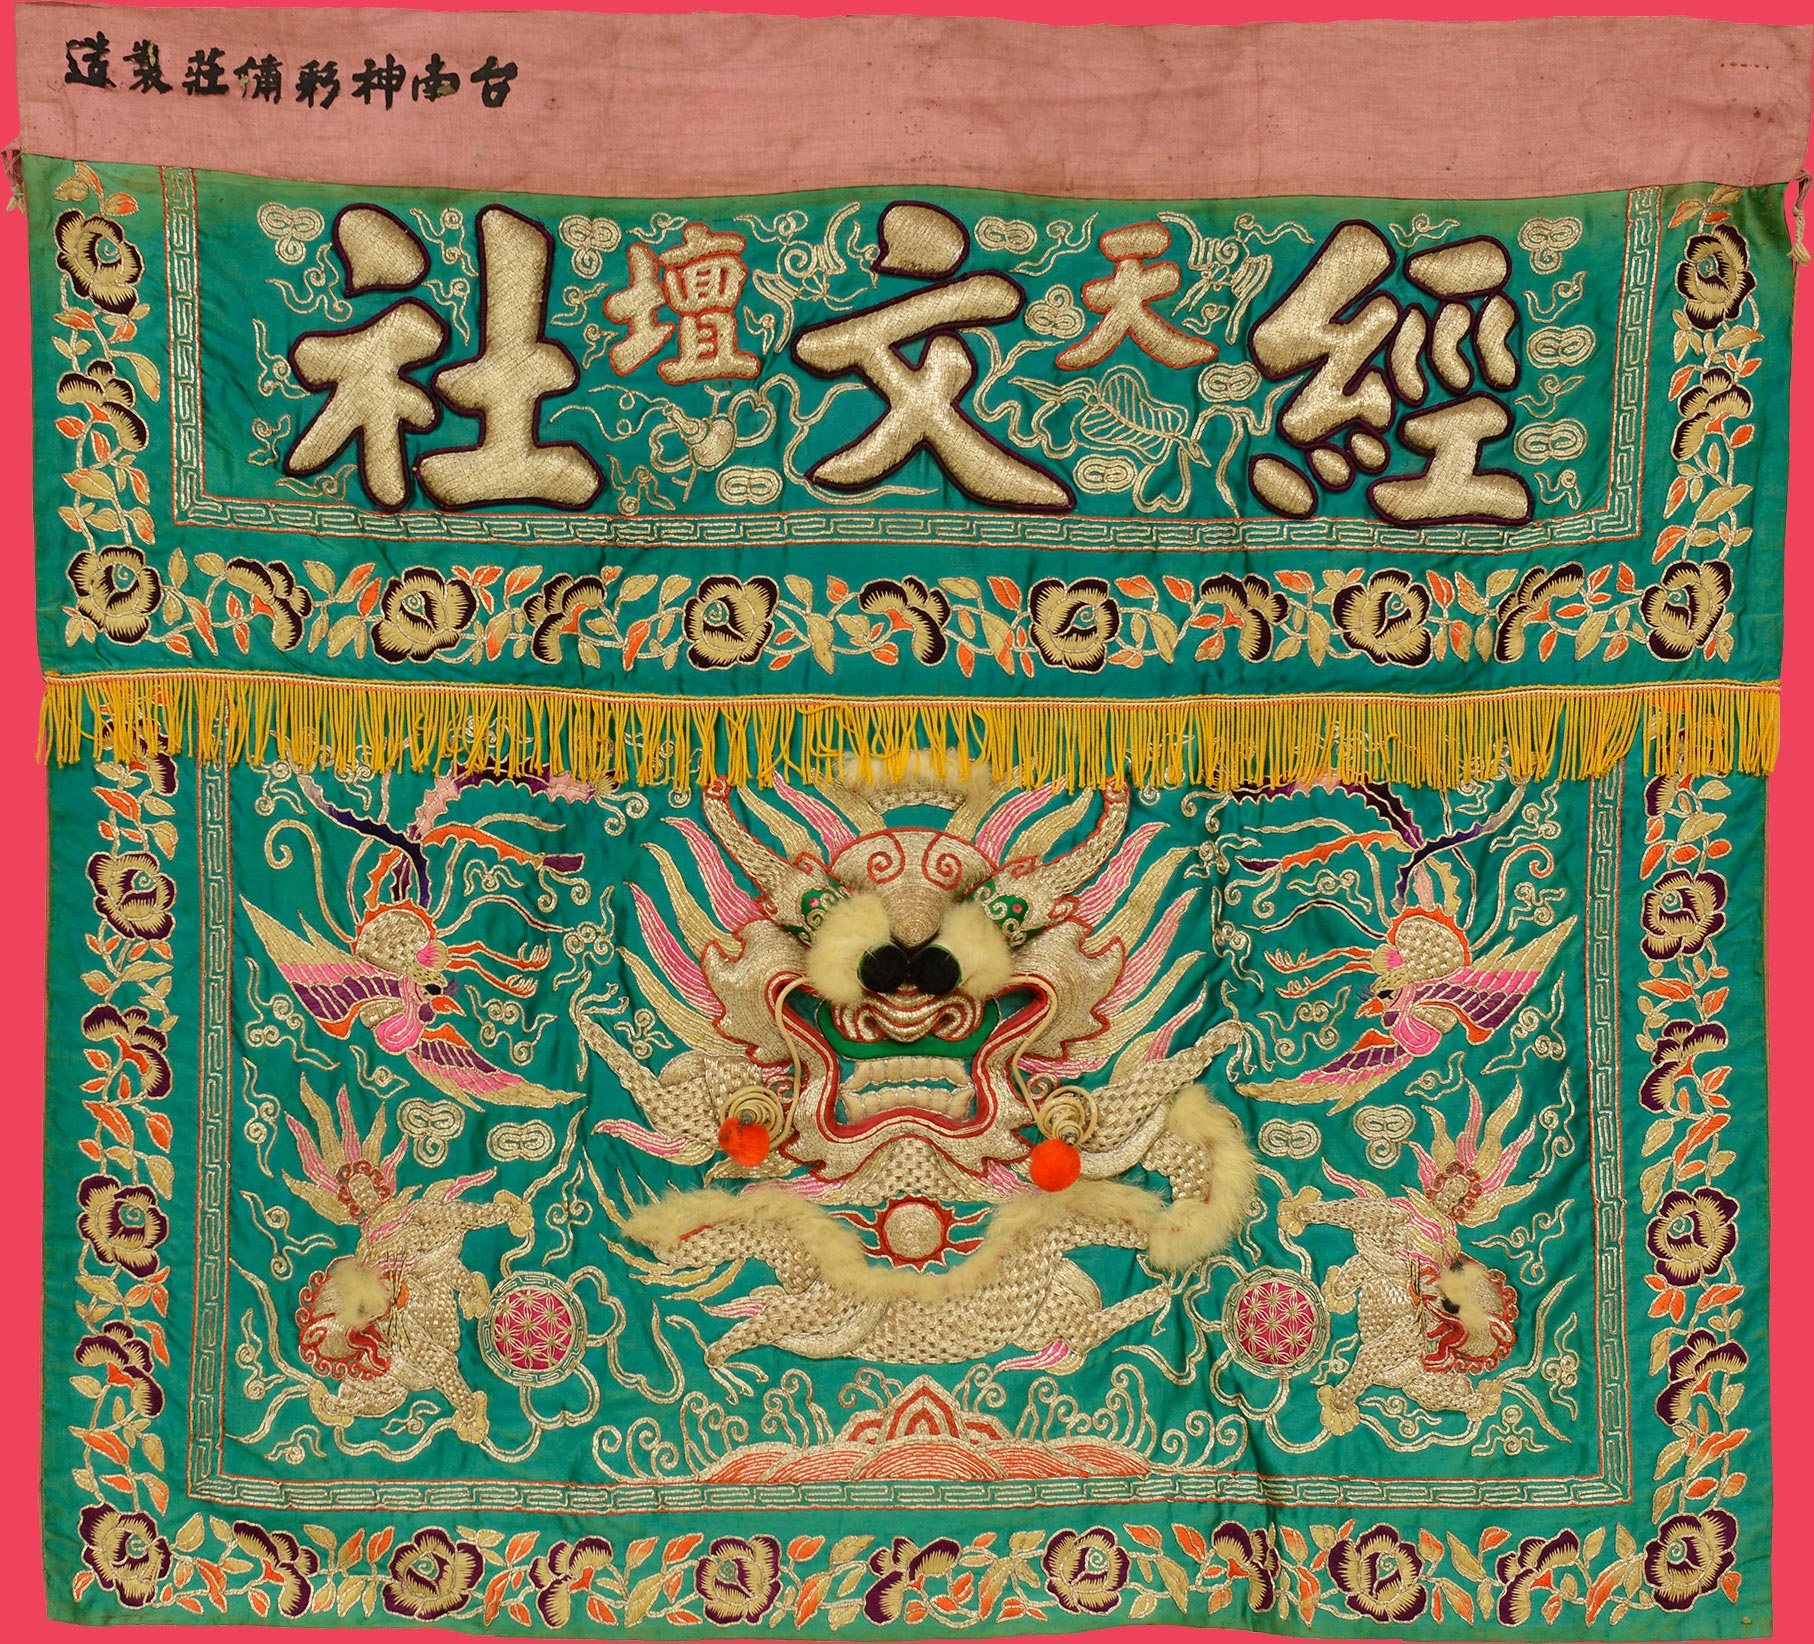 台南神彩繡莊製造
天壇
經文社